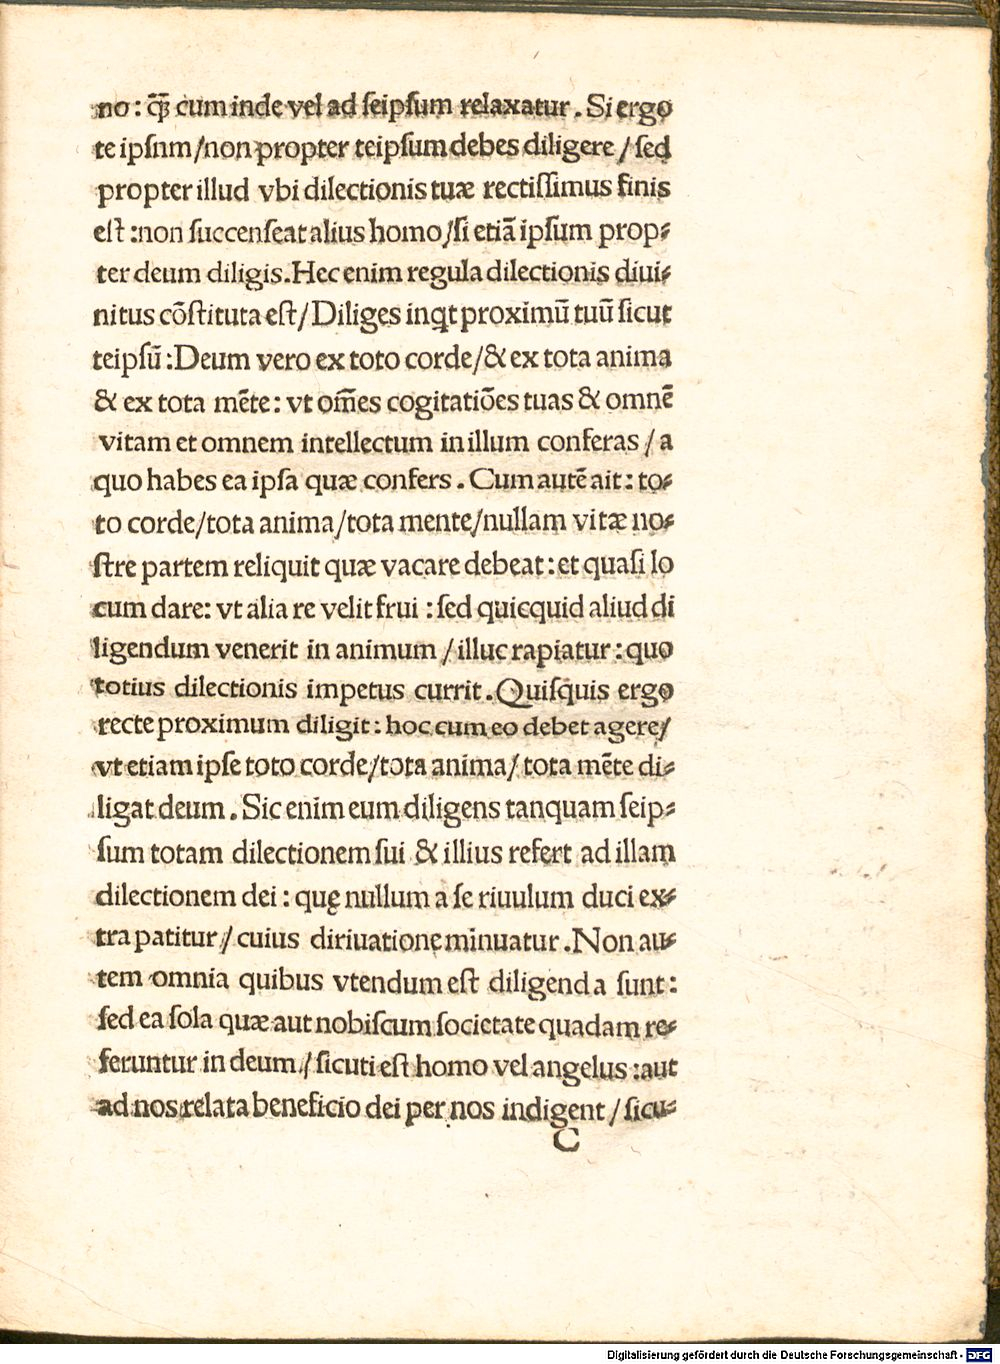 no : q̃ȝ cum inde vel ad ſeipſum relaxatur . Si ergo
te ipſnm / non propter teipſum debes diligere / ſed
propter illud vbi dilectionis tuæ rectiſſimus finis
eſt : non ſuccenſeat alius homo / ſi etiã ipſum prop⸗
ter deum diligis . Hec enim regula dilectionis diui⸗
nitus cõſtituta eſt / Diliges inqt proximũ tuũ ſicut
teipſũ : Deum vero ex toto corde / & ex tota anima
& ex tota mẽte : vt om̃es cogitatiões tuas & omnẽ
vitam et omnem intellectum in illum conferas / a
quo habes ea ipſa quæ confers . Cum autẽ ait : to⸗
to corde / tota anima / tota mente / nullam vitæ no⸗
ſtre partem reliquit quæ vacare debeat : et quaſi lo
cum dare : vt alia re velit frui : ſed quicquid aliud di
ligendum venerit in animum / illuc rapiatur : quo
totius dilectionis impetus currit . Quiſquis ergo
recte proximum diligit : hoc cum eo debet agere /
vt etiam ipſe toto corde / tota anima / tota mẽte di⸗
ligat deum . Sic enim eum diligens tanquam ſeip⸗
ſum totam dilectionem ſui & illius refert ad illam
dilectionem dei : quę nullum a ſe riuulum duci ex⸗
tra patitur / cuius diriuatione minuatur . Non au⸗
tem omnia quibus vtendum eſt diligenda sunt :
ſed ea ſola quæ aut nobiſcum ſocietate quadam re⸗
feruntur in deum / ſicuti eſt homo vel angelus : aut
ad nos relata beneficio dei per nos indigent / ſicu⸗
C
Digitalisierung gefördert durch die Deutsche Forschungsgemeinschaft - DFG